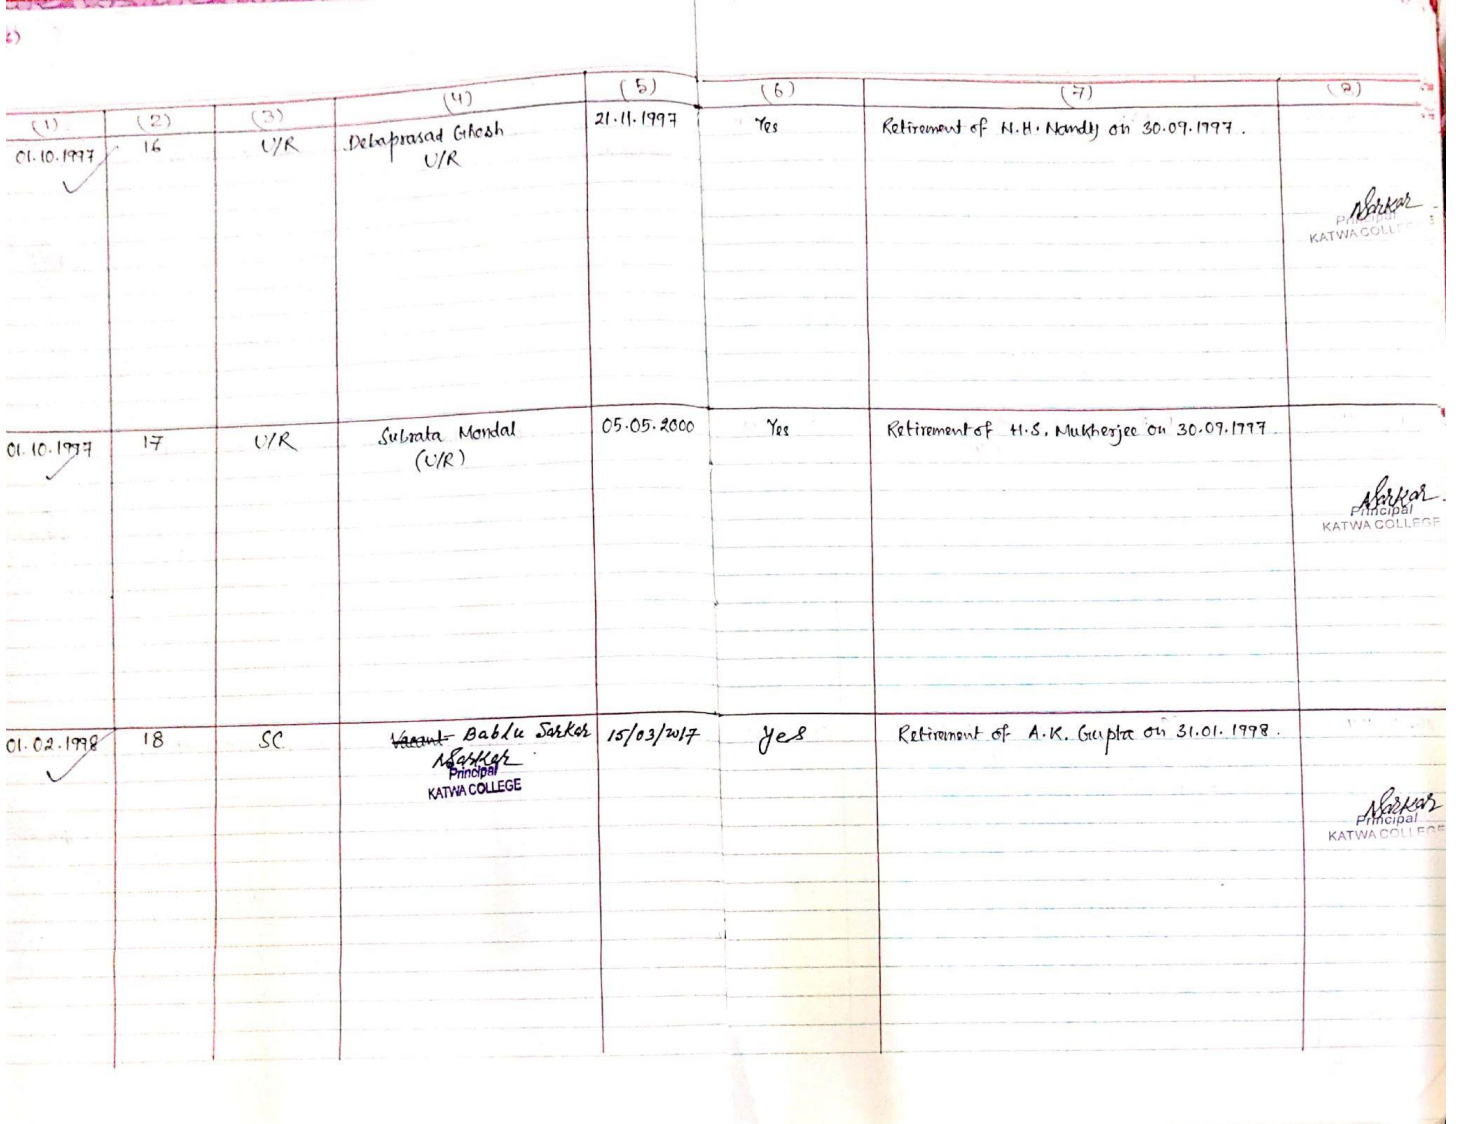 (1) (2) (3) (4) (5) (6) (7) (8)
01.10.1997 16 U/R Debaprasad Ghosh 21.11.1997 Yes Retirement of N.H. Nandy on 30.09.1997.
U/R
Sarkar
Principal
KATWA COLLEGE
01.10.1997 17 U/R Subrata Mondal 05.05.2000 Yes Retirement of H.S. Mukherjee on 30.09.1997
(U/R)
Sarkar
Principal
KATWA COLLEGE
01.02.1998 18 SC Vacant Bablu Sarkar 15/03/2017 Yes Retirement of A.K. Gupta on 31.01.1998.
Sarkar
Principal
KATWA COLLEGE
Sarkar
Principal
KATWA COLLEGE